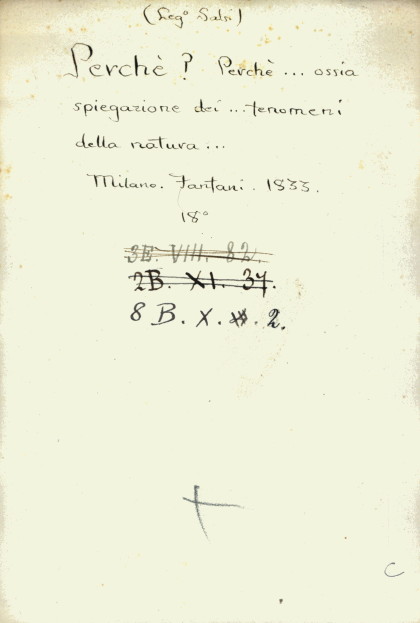 (Leg° Salri)
Perchè? Perchè ... ossia
spiegazione dei ... fenomeni
della natura ...
Milano. Fantani. 1833.
18°
3E. VIII. 82.
2B. XI. 37.
8 B. X. 2.
C